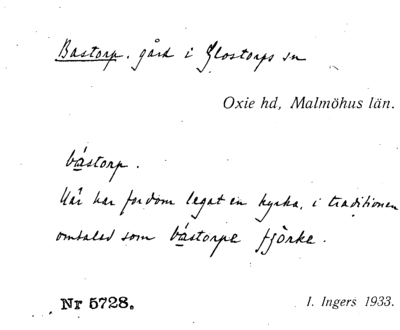 Bastorp. gård i Glostorps sn
Oxie hd, Malmöhus län.
bástorp.
Här har fordom legat en kyrka, i traditionen
omtalad som bástorpe fjörke.
Nr 5728.
I. Ingers 1933.